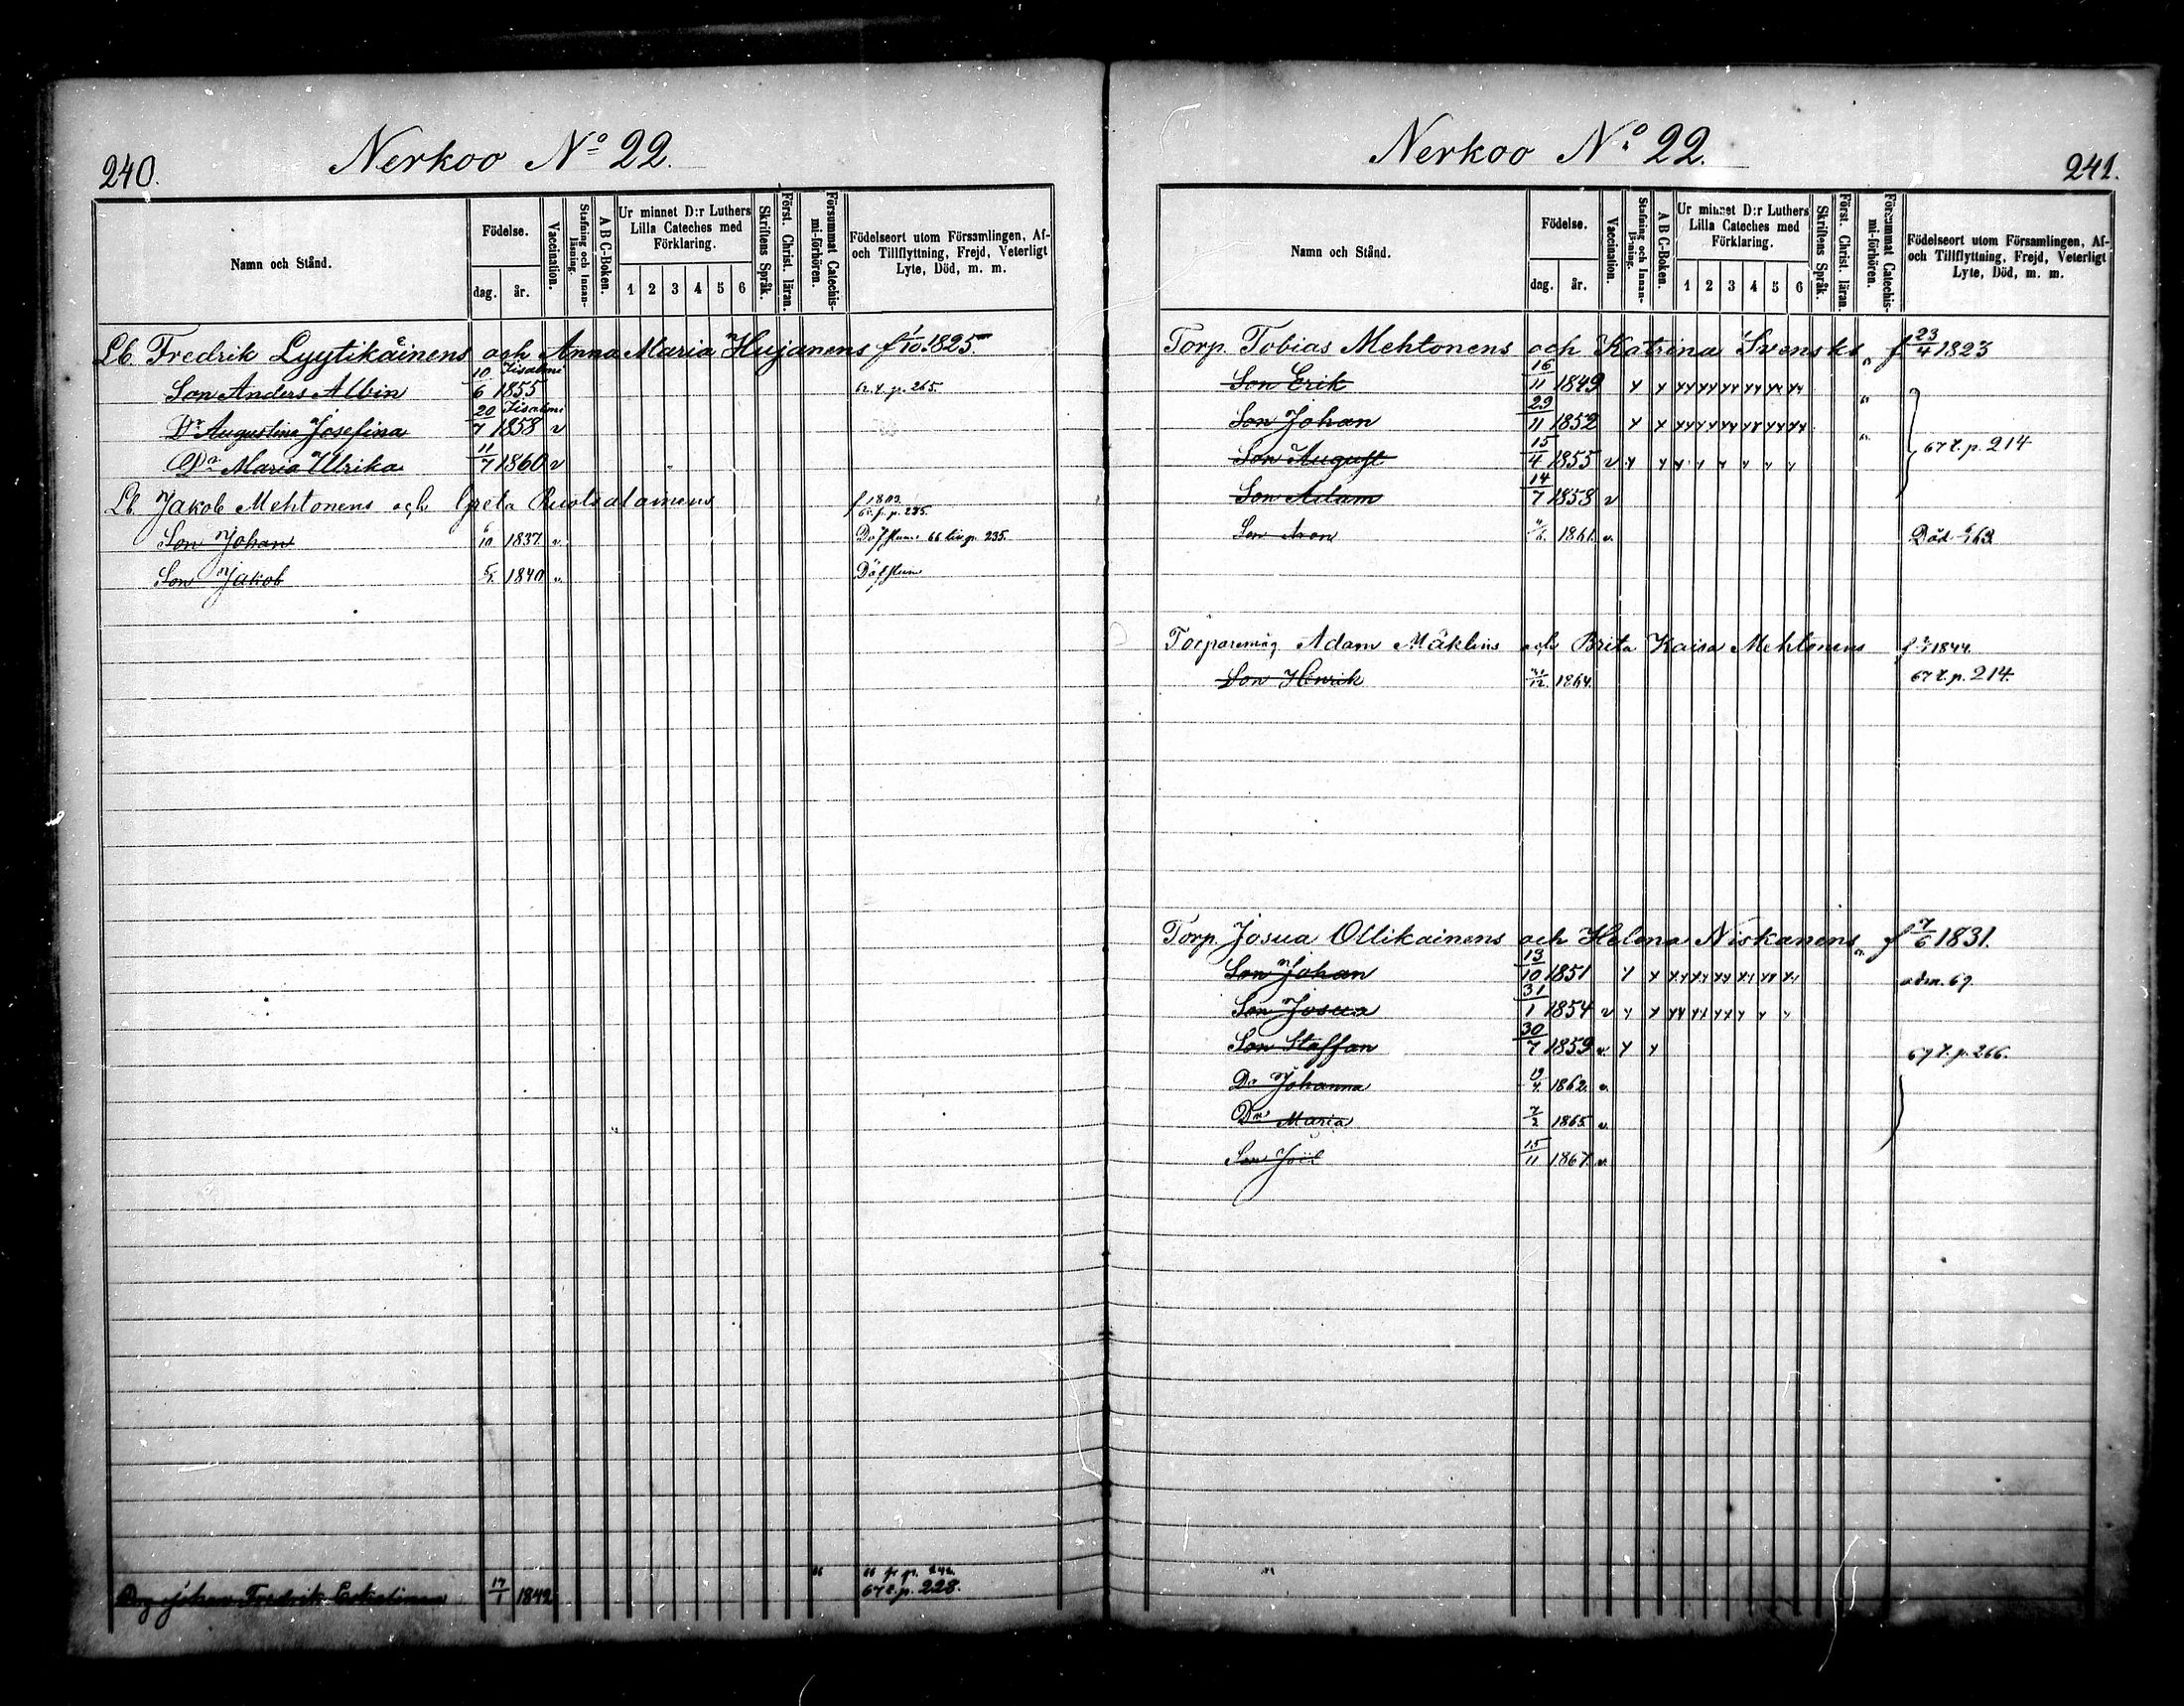 240.
Nerkoo No 22.
Namn och Stånd.
Födelse.
dag. år.
Vaccination.
Stafning och Innan-läsning.
A B C-Boken.
Ur minnet D:r Luthers Lilla Cateches med Förklaring.
1 2 3 4 5 6
Skriftens Språk.
Först. Christ. läran.
Försummat Catechis-mi-förhören.
Födelseort utom Församlingen, Af- och Tillflyttning, Frejd, Veterligt Lyte, Död, m. m.
Lb. Fredrik Lyytikäinens och Anna Maria Hujanens f 1/10 1825.
Son Anders Albin 10/6 Iisalmi 1855 62. t. p. 265.
Dr Augustina Josefina 20/7 Iisalmi 1858 v
Dr Maria Ulrika 11/7 1860 v
Lb. Jakob Mehtonens och Greta Ruotsalainens f 1803
Son Johan 6/10 1837 v. Döfstum. 66 p. 235.
Son Jakob 1840 v. Döfstum
Johan Fredrik 17/1 1842 66 fr p. 242.
67 t. p. 228.
Nerkoo No 22.
241.
Namn och Stånd.
Födelse.
dag. år.
Vaccination.
Stafning och Innan-läsning.
A B C-Boken.
Ur minnet D:r Luthers Lilla Cateches med Förklaring.
1 2 3 4 5 6
Skriftens Språk.
Först. Christ. läran.
Försummat Catechis-mi-förhören.
Födelseort utom Församlingen, Af- och Tillflyttning, Frejd, Veterligt Lyte, Död, m. m.
Torp. Tobias Mehtonens och Katrina Svensks f 23/4 1823
Son Erik 16/11 1849
Son Johan 29/11 1852
Son August 15/4 1855 v 67 t. p. 214
Son Adam 14/7 1858 v
Son Aron 1861. v. Död 63.
Adam Mäklins och Brita Kaisa Mehtonens f 1844.
Son Henrik 1864. 67 t. p. 214.
Torp. Josua Ollikainens och Helena Niskanens f 7/6 1831.
Son Johan 13/10 1851 adm. 69.
Son Josua 31/1 1854 v
Son Staffan 30/7 1859 v 69 t. p. 266.
Dr Johanna 19/4 1862. v.
Dr Maria 7/2 1865 v.
Son Joël 15/11 1867 v.